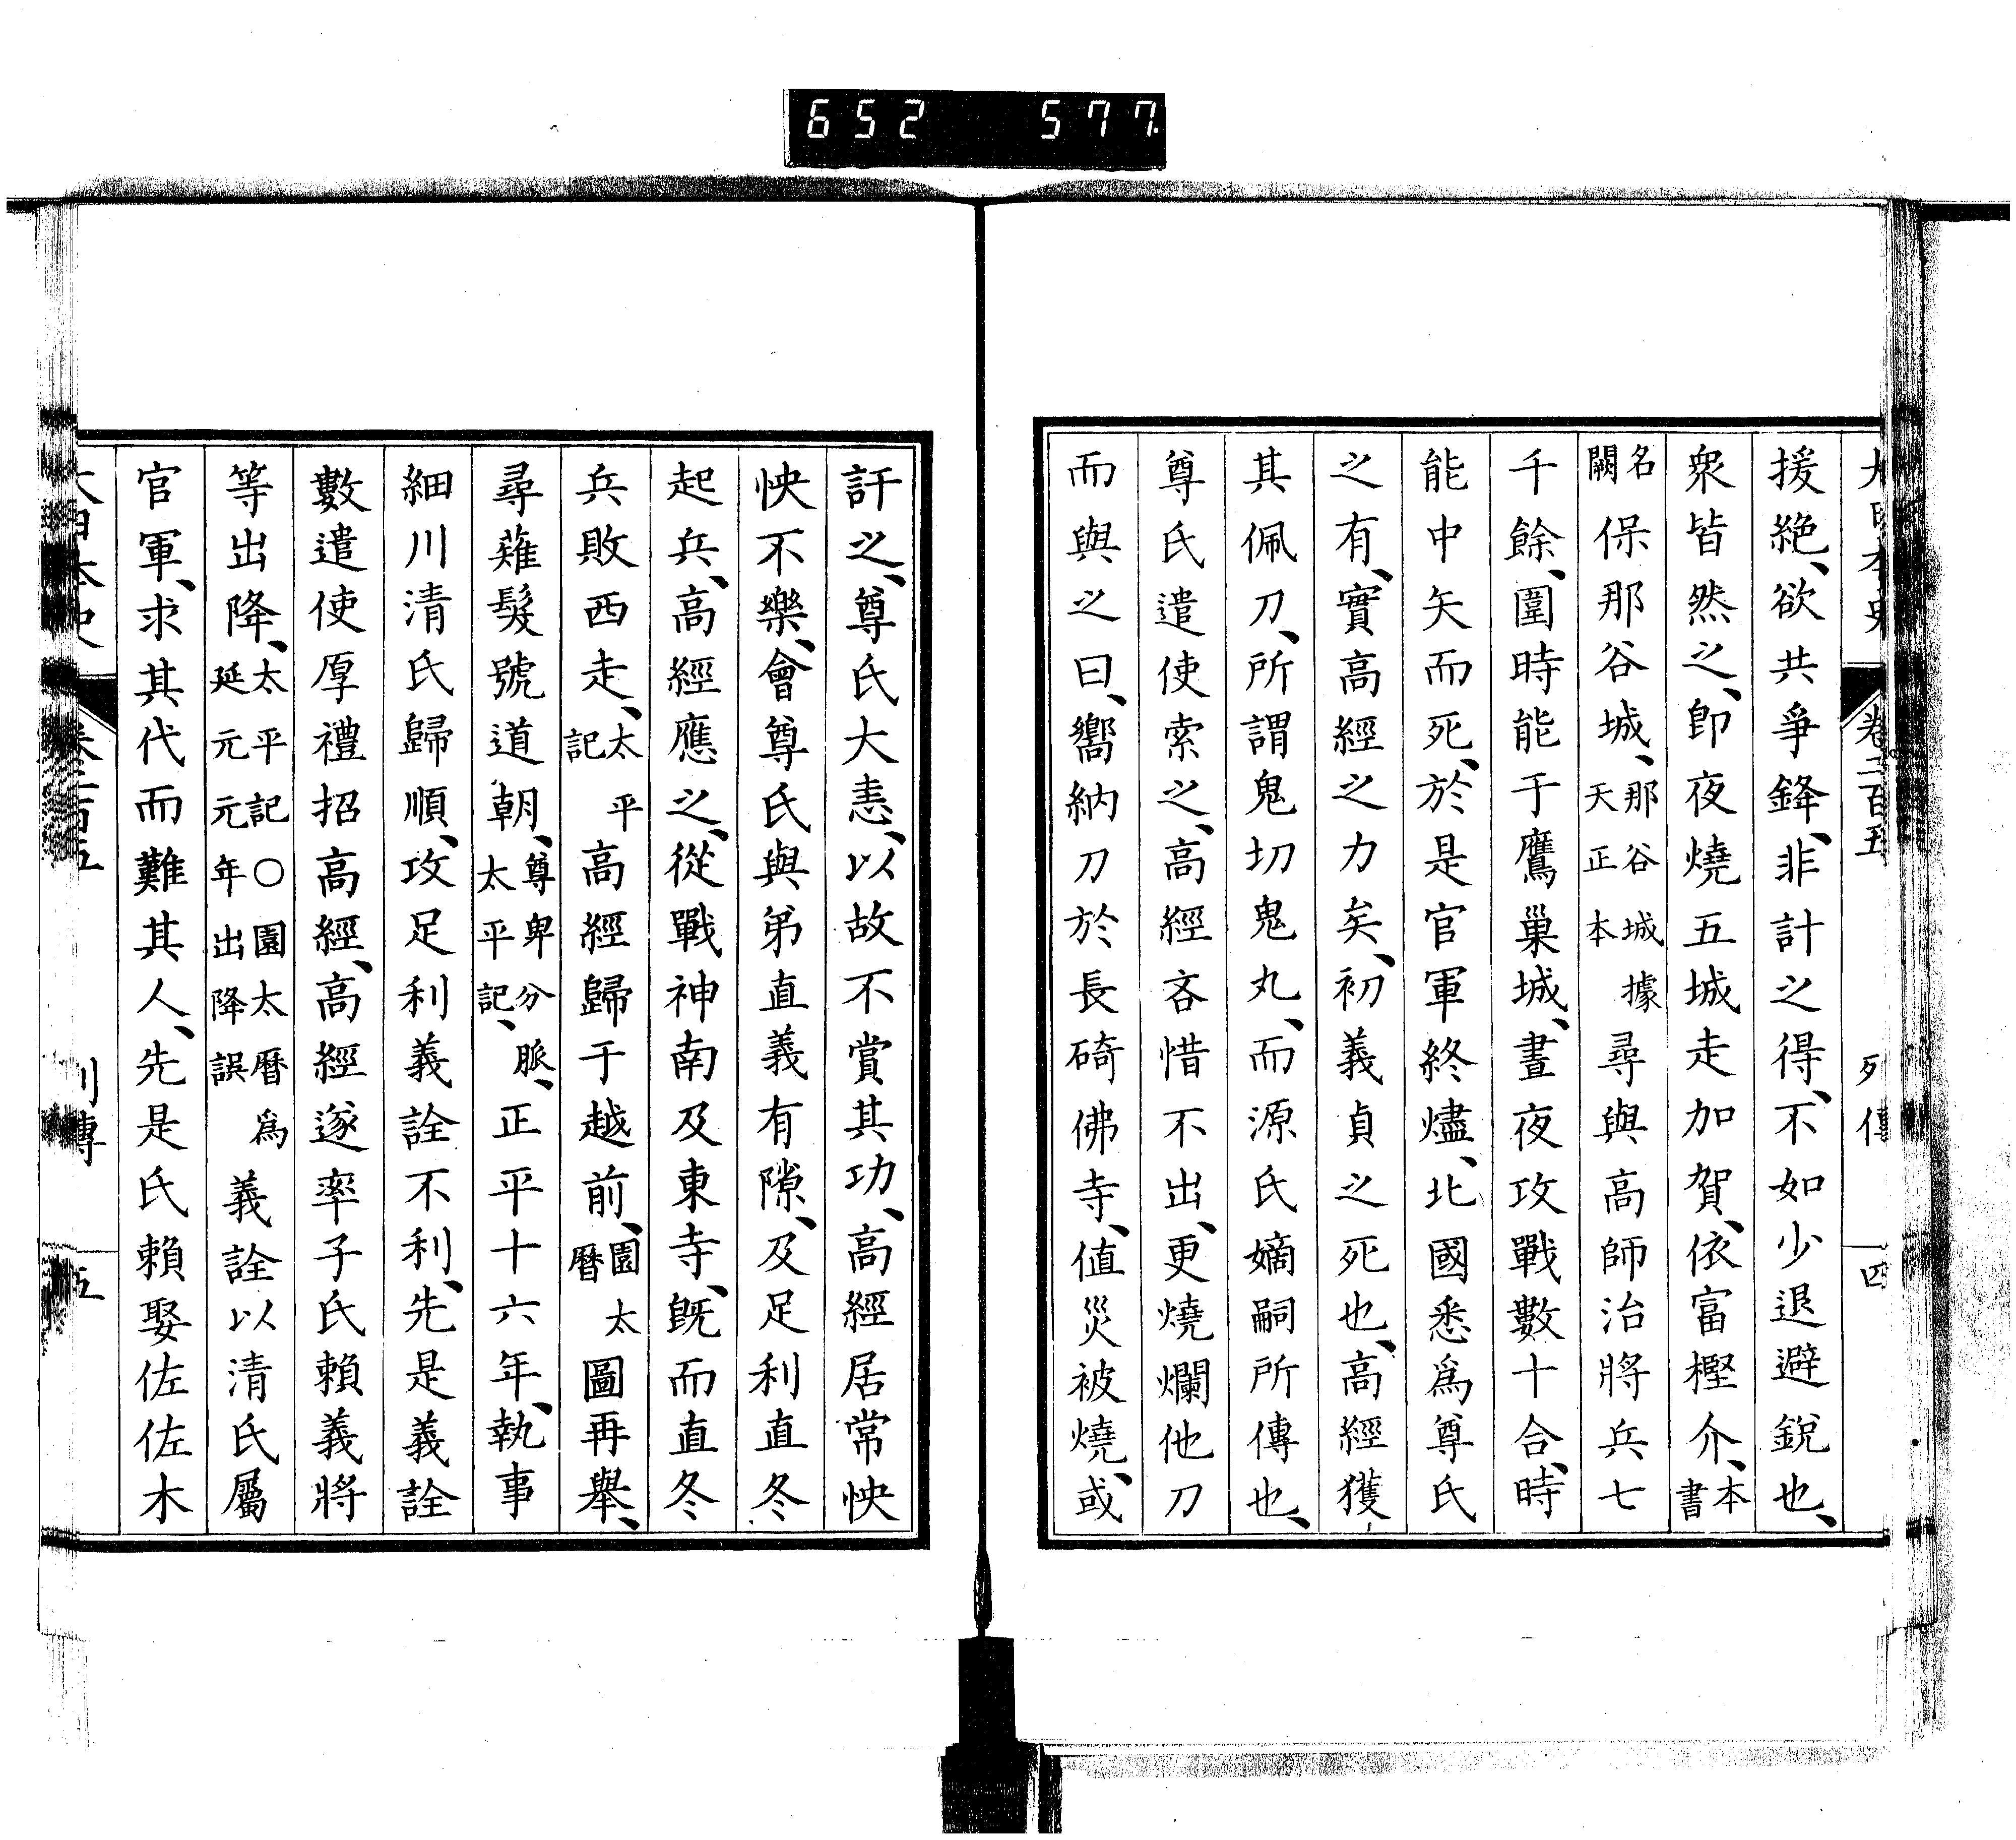 652 577
大日本史 卷二百五 列傳 四
援絶、欲共爭鋒、非計之得、不如少退避銳也、
衆皆然之、卽夜燒五城走加賀、依富樫介、本書
名闕保那谷城、那谷城據天正本尋與高師治將兵七
千餘、圍時能于鷹巢城、晝夜攻戰數十合、時
能中矢而死、於是官軍終燼、北國悉爲尊氏
之有、實高經之力矣、初義貞之死也、高經獲
其佩刀、所謂鬼切鬼丸、而源氏嫡嗣所傳也、
尊氏遣使索之、高經吝惜不出、更燒爛他刀
而與之曰、嚮納刀於長碕佛寺、値災被燒、或
訐之、尊氏大恚、以故不賞其功、高經居常怏
怏不樂、會尊氏與弟直義有隙、及足利直冬
起兵、高經應之、從戰神南及東寺、旣而直冬
兵敗西走、太平記高經歸于越前、園太曆圖再舉、
尋薙髮號道朝、尊卑分脈、太平記、正平十六年、執事
細川清氏歸順、攻足利義詮不利、先是義詮
數遣使厚禮招高經、高經遂率子氏賴義將
等出降、太平記○園太曆爲延元元年出降誤義詮以清氏屬
官軍、求其代而難其人、先是氏賴娶佐佐木
大日本史 卷二百五 列傳 五